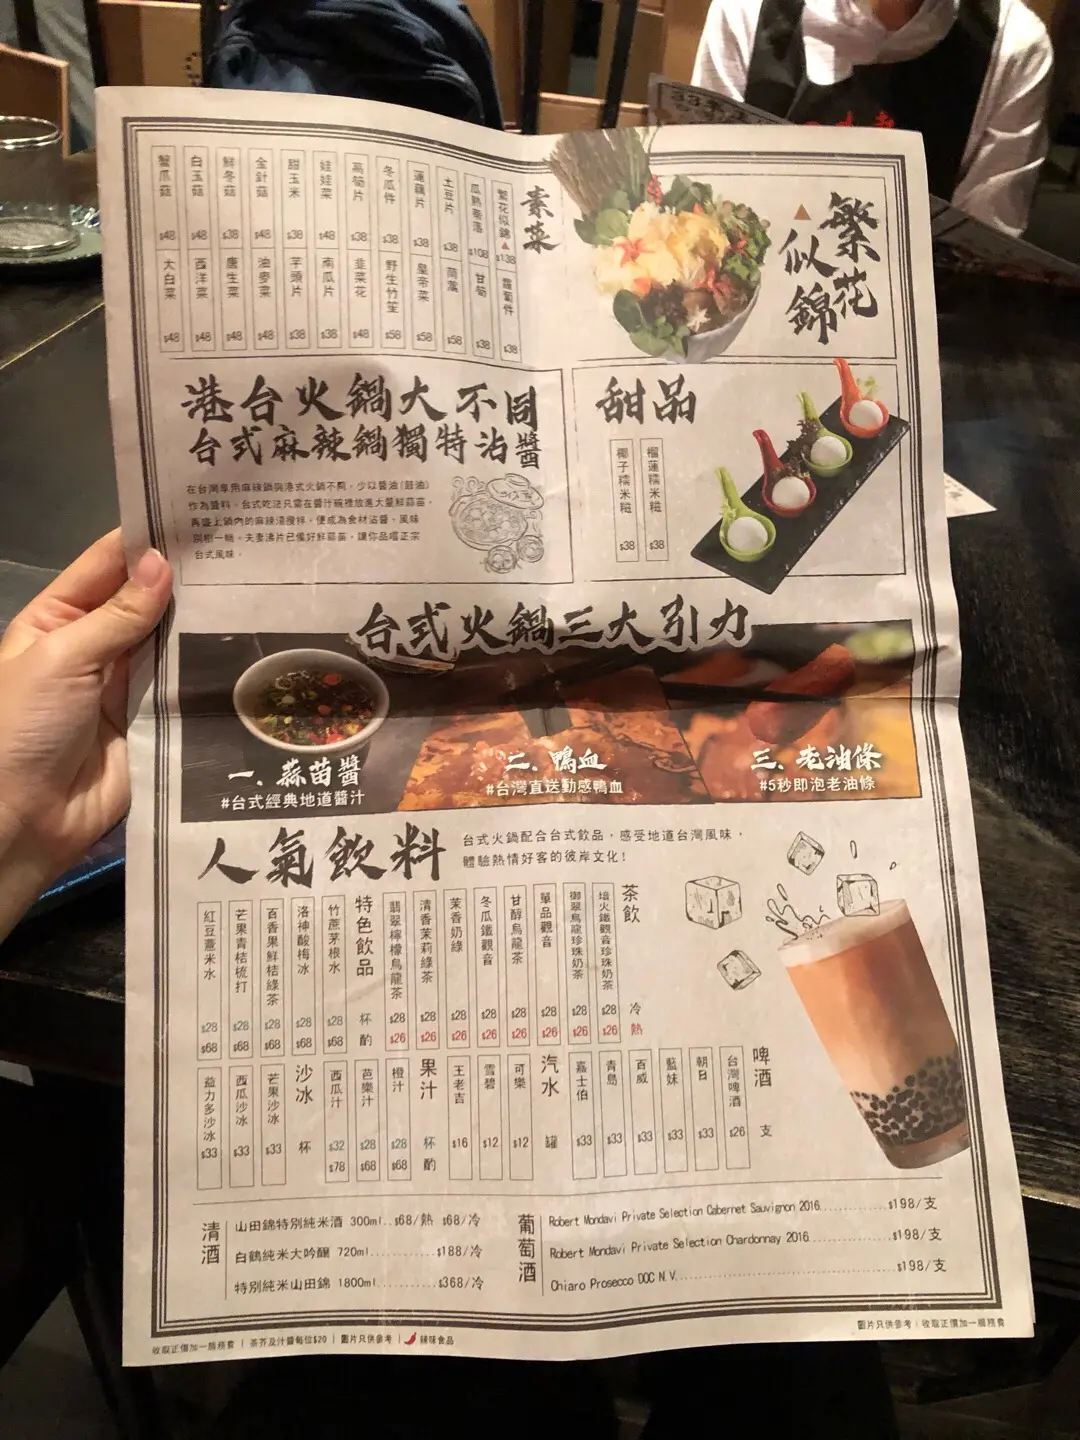 繁花似錦
素菜
繁花似錦 $138
瓜熟蒂落 $108
土豆片 $38
蓮藕片 $38
冬瓜件 $38
萵筍片 $38
娃娃菜 $48
甜玉米 $38
金針菇 $48
鮮冬菇 $38
白玉菇 $48
蟹爪菇 $48
蘿蔔件 $38
甘筍 $38
茼蒿 $58
皇帝菜 $58
野生竹笙 $58
韭菜花 $48
南瓜片 $38
芋頭片 $38
油麥菜 $48
唐生菜 $48
西洋菜 $48
大白菜 $48
港台火鍋大不同
台式麻辣鍋獨特沾醬
在台灣享用麻辣鍋與港式火鍋不同，少以醬油(豉油)
作為醬料，台式吃法只需在醬汁碗裡放進大量鮮蒜苗，
再盛上鍋內的麻辣湯攪拌，便成為食材沾醬，風味
別樹一幟。夫妻沸片已備好鮮蒜苗，讓你品嚐正宗
台式風味。
甜品
榴蓮糯米糍 $38
椰子糯米糍 $38
台式火鍋三大引力
一、蒜苗醬
#台式經典地道醬汁
二、鴨血
#台灣直送動感鴨血
三、老油條
#5秒即泡老油條
人氣飲料
台式火鍋配合台式飲品，感受地道台灣風味，
體驗熱情好客的彼岸文化！
茶飲 冷 熱
焙火鐵觀音珍珠奶茶 $28 $26
御翠烏龍珍珠奶茶 $28 $26
單品觀音 $28 $26
甘醇烏龍茶 $28 $26
冬瓜鐵觀音 $28 $26
茉香奶綠 $28 $26
清香茉莉綠茶 $28 $26
翡翠檸檬烏龍茶 $28 $26
特色飲品 杯 酌
竹蔗茅根水 $28 $68
洛神酸梅冰 $28 $68
百香果鮮桔綠茶 $28 $68
芒果青桔梳打 $28 $68
紅豆薏米水 $28 $68
啤酒 支
台灣啤酒 $26
朝日 $33
藍妹 $33
百威 $33
青島 $33
嘉士伯 $33
汽水 罐
可樂 $12
雪碧 $12
王老吉 $16
果汁 杯 酌
橙汁 $28 $68
芭樂汁 $28 $68
西瓜汁 $32 $78
沙冰 杯
芒果沙冰 $33
西瓜沙冰 $33
益力多沙冰 $33
清酒
山田錦特別純米酒 300ml..$68/熱 $68/冷
白鶴純米大吟釀 720ml...........$188/冷
特別純米山田錦 1800ml...........$368/冷
葡萄酒
Robert Mondavi Private Selection Cabernet Sauvignon 2016............$198/支
Robert Mondavi Private Selection Chardonnay 2016............$198/支
Chiaro Prosecco DOC N.V............$198/支
收取正價加一服務費 | 茶芥及汁醬每位$20 | 圖片只供參考 | 辣味食品
圖片只供參考 | 收取正價加一服務費